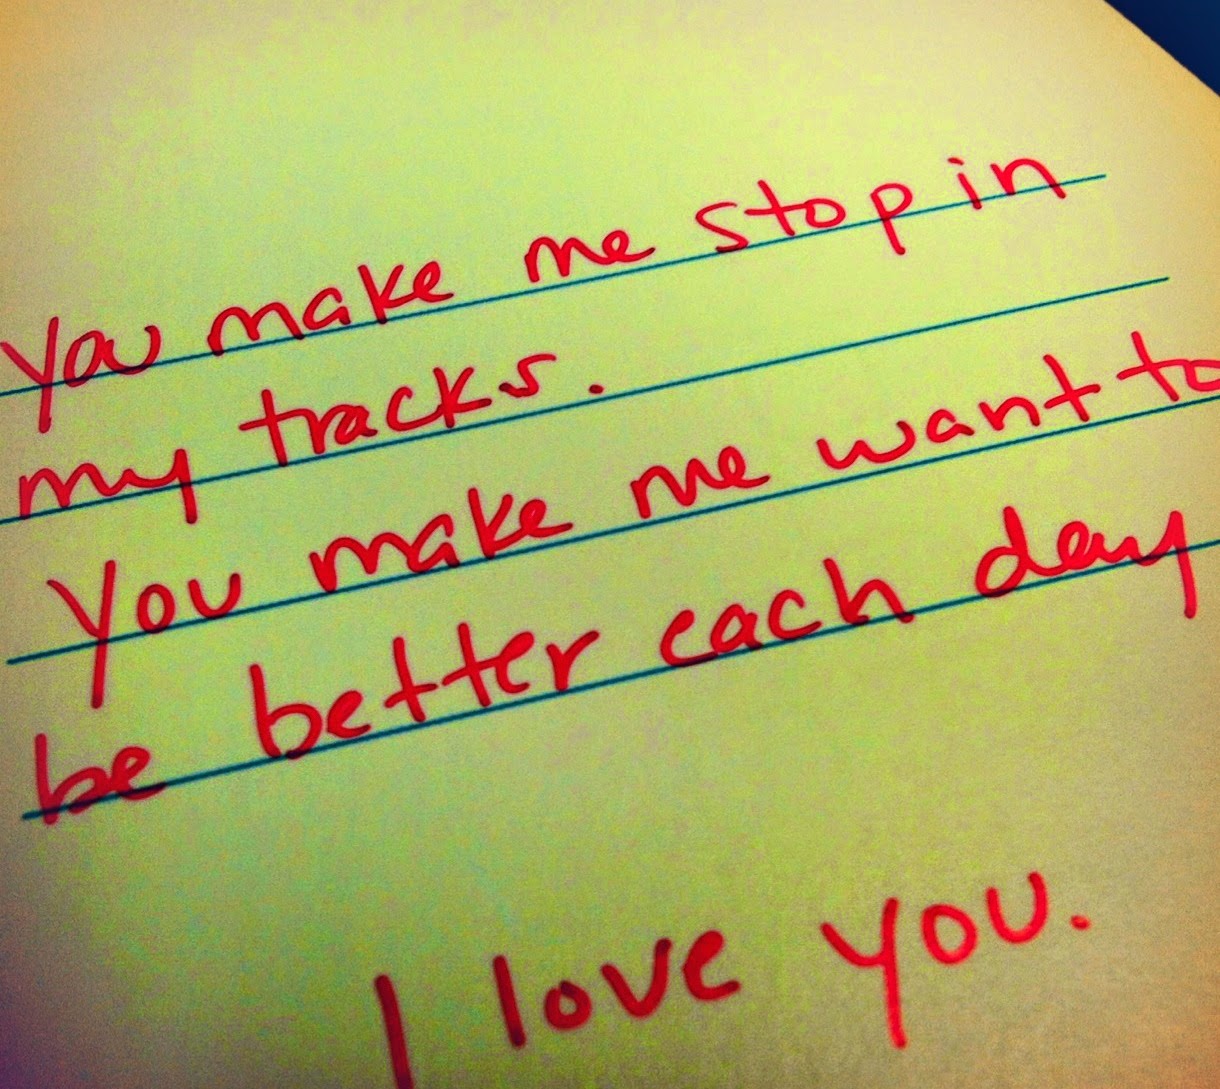 You make me stop in
my tracks.
You make me want to
be better each day
I love you.